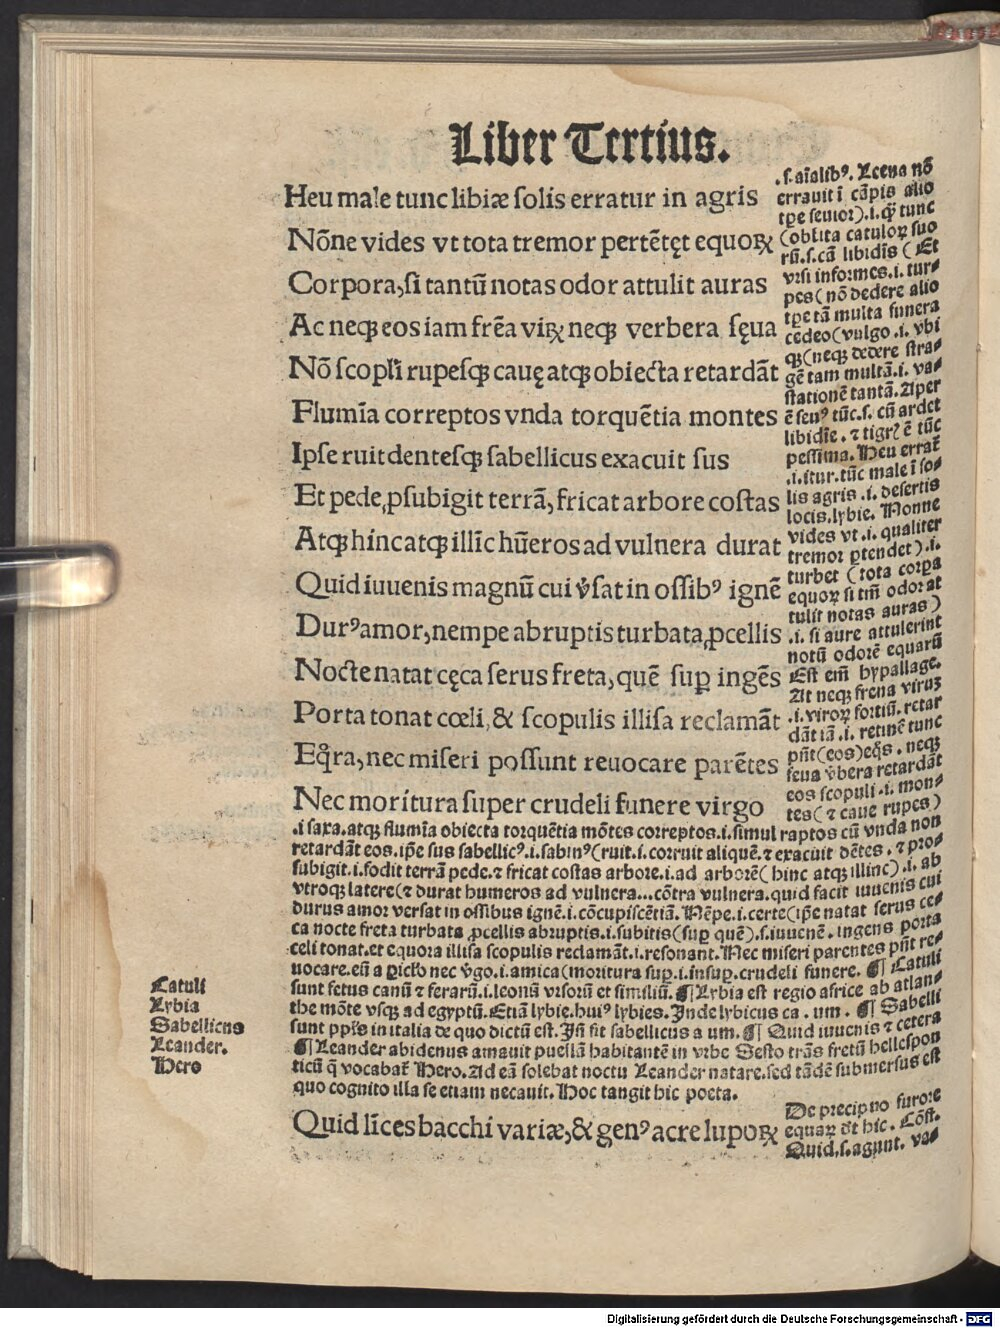 Liber Tertius.
Heu male tunc libiæ solis erratur in agris
Nõne vides vt tota tremor pertẽtęt equoꝝ
Corpora, si tantũ notas odor attulit auras
Ac neqꝫ eos iam frẽa virꝝ neqꝫ verbera sęua
Nõ scopl̃i rupesqꝫ cauę atqꝫ obiecta retardãt
Flumĩa correptos vnda torquẽtia montes
Ipse ruit dentesqꝫ sabellicus exacuit sus
Et pede ꝓsubigit terrã, fricat arbore costas
Atqꝫ hinc atqꝫ illĩc hũeros ad vulnera durat
Quid iuuenis magnũ cui v̾sat in ossibꝰ ignẽ
Durꝰ amor, nempe abruptis turbata ꝓcellis
Nocte natat cęca serus freta, quẽ suꝑ ingẽs
Porta tonat cœli, & scopulis illisa reclamãt
Eq̃ra, nec miseri possunt reuocare parẽtes
Nec moritura super crudeli funere virgo
.s. aĩalibꝰ. Leena nõ
errauit ĩ cãpis alio
tꝑe seuior).i. qꝫ tunc
(oblita catuloꝝ suo
rũ.s. cã libidĩs (Et
vrsi informes.i. tur⸗
pes (nõ dedere alio
tꝑe tã multa funera
cedeo (vulgo .i. vbi
qꝫ (neqꝫ dedere stra⸗
gẽ tam multã.i. va⸗
stationẽ tantã. Aper
ẽ seuꝰ tũc.s. cũ ardet
libidĩe. ⁊ tigrꝭ ẽ tũc
pessima. Heu errat̃
.i. itur. tũc male ĩ so⸗
lis agris .i. desertis
locis. lybie. Nonne
vides vt .i. qualiter
tremor ꝑtendet).i.
turbet (tota corꝑa
equoꝝ si tm̃ odor at
tulit notas auras)
.i. si aure attulerint
notũ odorẽ equarũ
Est em̃ hypallage.
At neqꝫ frena viruꝫ
.i. viroꝝ fortiũ. retar
dãt iã .i. retinẽt tunc
pñt (eos) eq̃s. neqꝫ
seua v̾bera retardãt
eos scopuli .i. mon⸗
tes (⁊ caue rupes)
.i saxa. atqꝫ flumĩa obiecta torquẽtia mõtes correptos.i. simul raptos cũ vnda non
retardãt eos. ip̃e sus sabellicꝰ.i. sabinꝰ (ruit.i. corruit aliquẽ. ⁊ exacuit dẽtes. ⁊ pro⸗
subigit.i. fodit terrã pede. ⁊ fricat costas arbore.i. ad arborẽ (hinc atqꝫ illinc).i. ab
vtroqꝫ latere (⁊ durat humeros ad vulnera... cõtra vulnera. quid facit iuuenis cui
durus amor versat in ossibus ignẽ.i. cõcupiscẽtiã. Nẽpe.i. certe (ip̃e natat serus ce⸗
ca nocte freta turbata ꝓcellis abruptis.i. subitis (suꝑ quẽ).s. iuuenẽ. ingens porta
celi tonat. et equora illisa scopulis reclamãt.i. resonant. Nec miseri parentes pñt re⸗
uocare. eũ a ꝑicl̃o nec v̾go.i. amica (moritura suꝑ.i. insuꝑ. crudeli funere. ¶ Catuli
sunt fetus canũ ⁊ ferarũ.i. leonũ vrsorũ et similiũ. ¶ Lybia est regio africe ab atlan⸗
the mõte vsqꝫ ad egyptũ. Etiã lybie. huiꝰ lybies. Inde lybicus ca. um. ¶ Sabelli
sunt pp̃ls in italia de quo dictũ est. Iñ fit sabellicus a um. ¶ Quid iuuenis ⁊ cetera
¶ Leander abidenus amauit puellã habitantẽ in vrbe Sesto trãs fretũ hellespon
ticũ q̃ vocabat̃ Hero. Ad eã solebat noctu Leander natare. sed tãdẽ submersus est
quo cognito illa se etiam necauit. Hoc tangit hic poeta.
Catuli
Lybia
Sabellicus
Leander.
Hero
Quid lĩces bacchi variæ, & genꝰ acre lupoꝝ
De precipuo furore
equaꝝ d̾t hic. Cõst.
Quid.s. agunt. va⸗
Digitalisierung gefördert durch die Deutsche Forschungsgemeinschaft - DFG